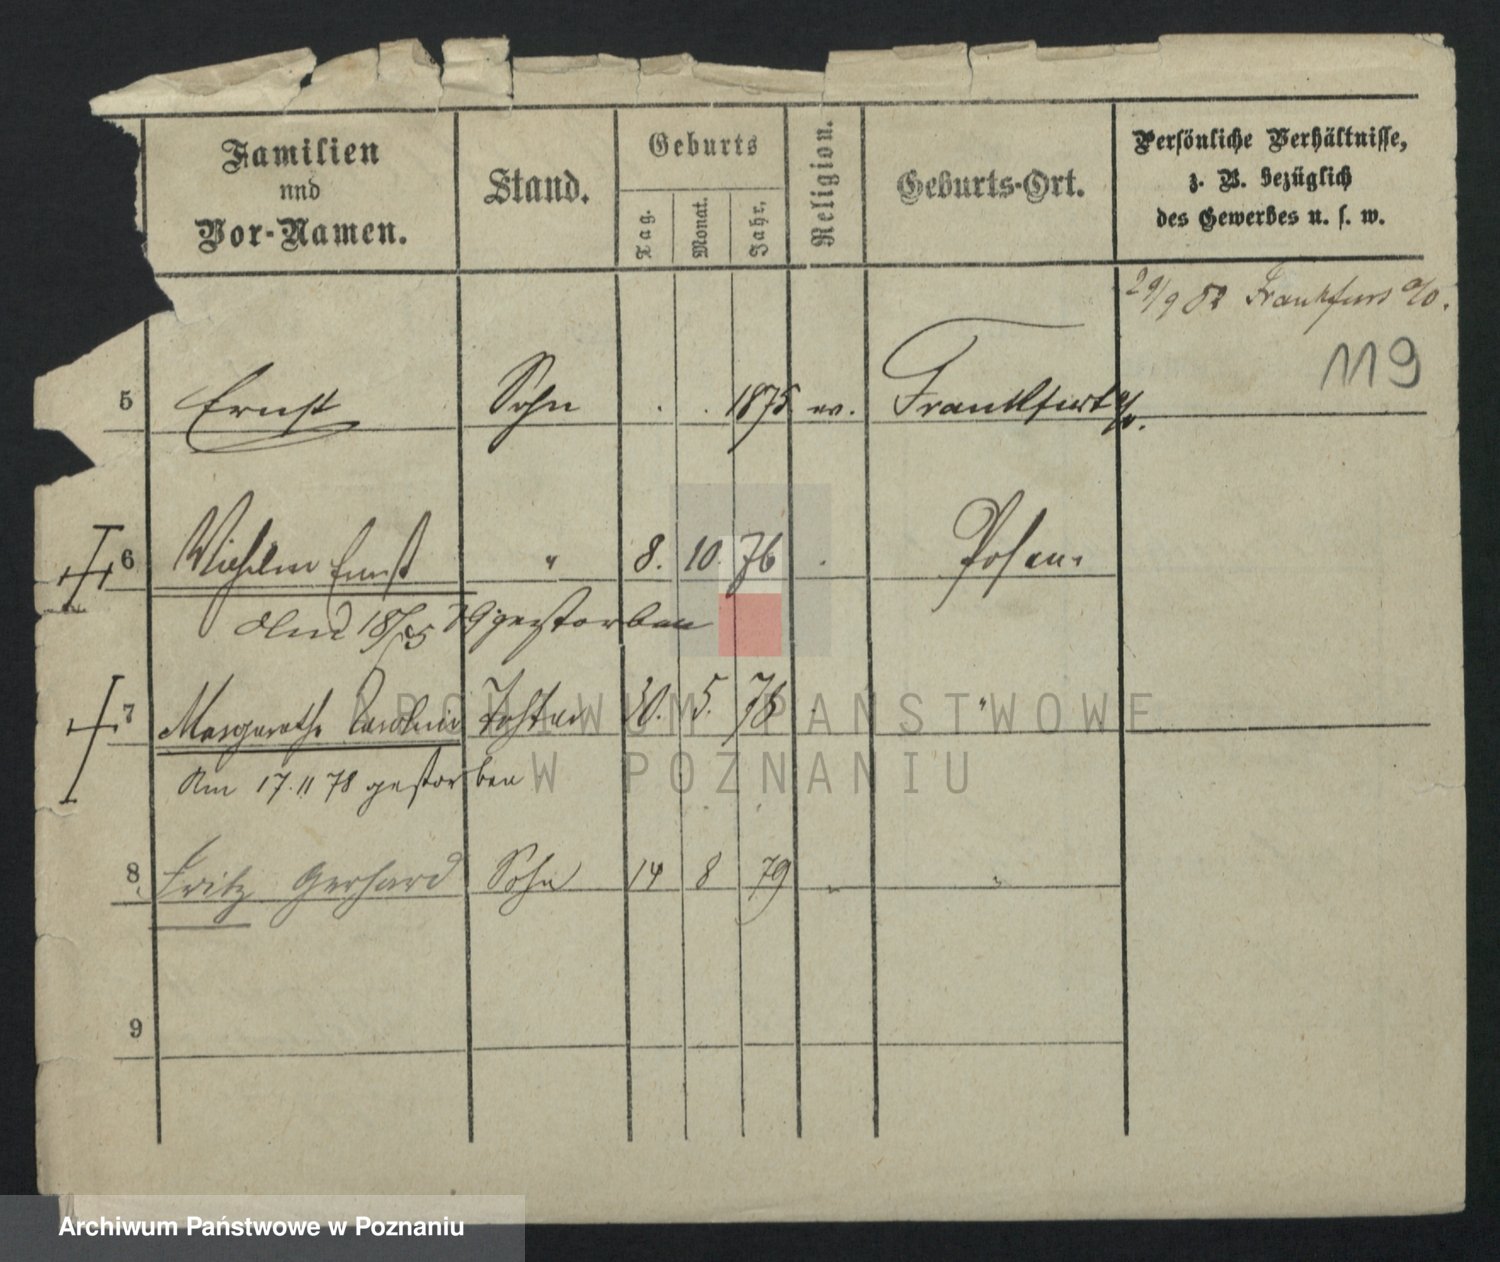 Familien
und
Vor-Namen.
Stand.
Geburts
Tag.
Monat.
Jahr.
Religion.
Geburts-Ort.
Persönliche Verhältnisse,
z. B. bezüglich
des Gewerbes u. s. w.
29/9 82 Frankfurt a/O.
119
5 Ernst Sohn . . 1875 ev. Frankfurt a/O.
6 Wilhelm Ernst " 8. 10. 76 . Posen.
18/5 79 gestorben
7 Margarethe Caroline Tochter 30. 5. 78 . "
Am 17. 11 78 gestorben
8 Fritz Gerhard Sohn 14 8 79 " "
9
ARCHIWUM PAŃSTWOWE
W POZNANIU
Archiwum Państwowe w Poznaniu